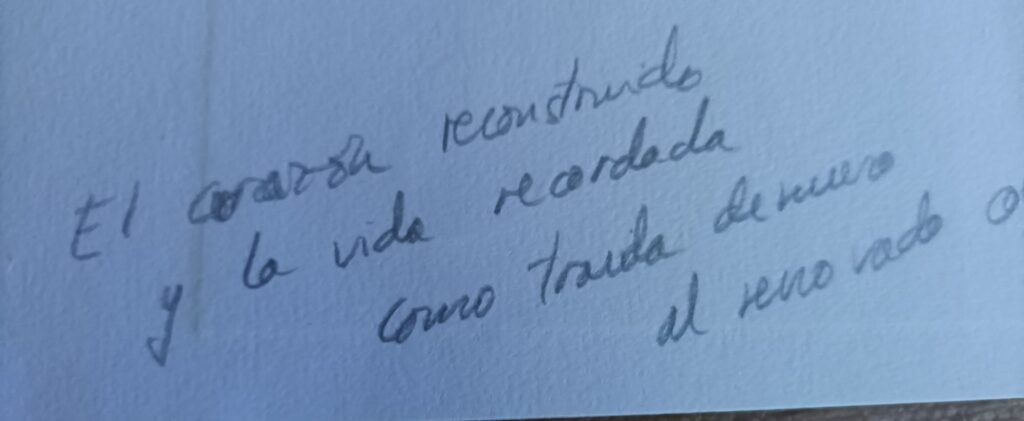 El corazón reconstruido
y la vida recordada
como traida de nuevo
al renovado